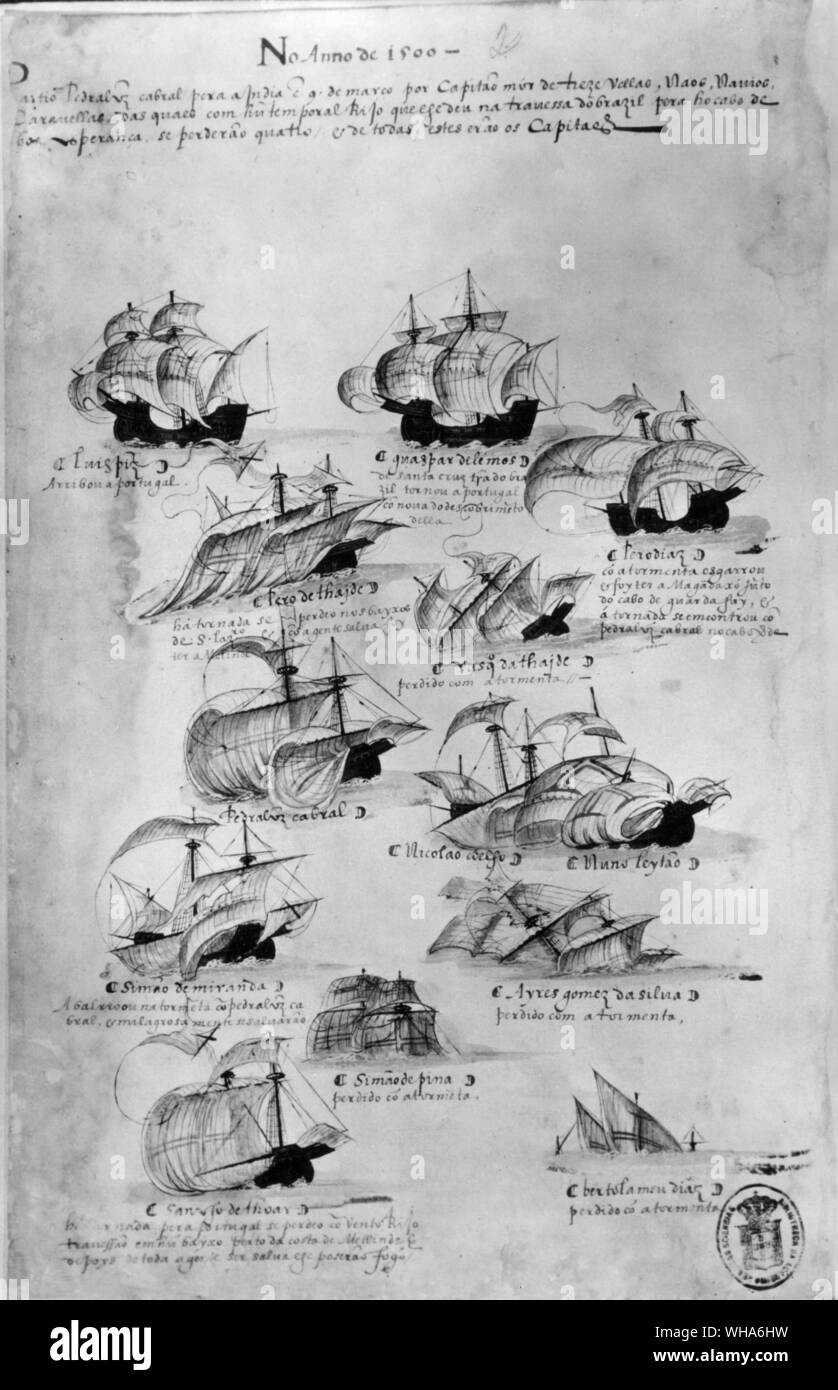 No Anno de 1500 — 2
Partio Pedralvz cabral pera a India ē 9. de março por Capitão mór de treze vellas, Naos, Navios,
Caravellas, das quaes com hū temporal Rijo que lhe deu na travessa do brazil pera ho cabo de
boa esperança, se perderão quatro, & de todas estes erão os Capitaes
Luis piz
Arribou a portugal.
quaspar de lemos
de santa cruz trā do bra
zil tornou a portugal
cō nova do descobrimēto
della
Pero diaz
cō a tormenta esgarrou
e foy ter a Magadaxó jūto
do cabo de guardafuy, &
á tornada se emcontrou cō
pedralvz cabral no cabo vde
Pero de thajde
há tornada se
perdeo nos bayxos
de S. Lazro
cō a gente salva
ter a Melinde
Vasqo da thajde
perdido com a tormenta //—
Pedralvz cabral
Nicolao coelho
Nuno leytão
Simão de miranda
Abalrroou na tormēta cō pedralvz ca
bral, & milagrosamente se salvarão
Ayres gomez da silva
perdido com a tormenta,
Simão de pina
perdido cō a tormēta.
Sancho de thoar
há tornada pera portugal se perdeo cō vento Rijo
travessão em hū bayxo perto da costa de Mellinde, &
depoys de toda a gente ser salva lhe poserão fogo
bertolameu diaz
perdido cō a tormenta
alamy
alamy
Image ID: WHA6HW
www.alamy.com